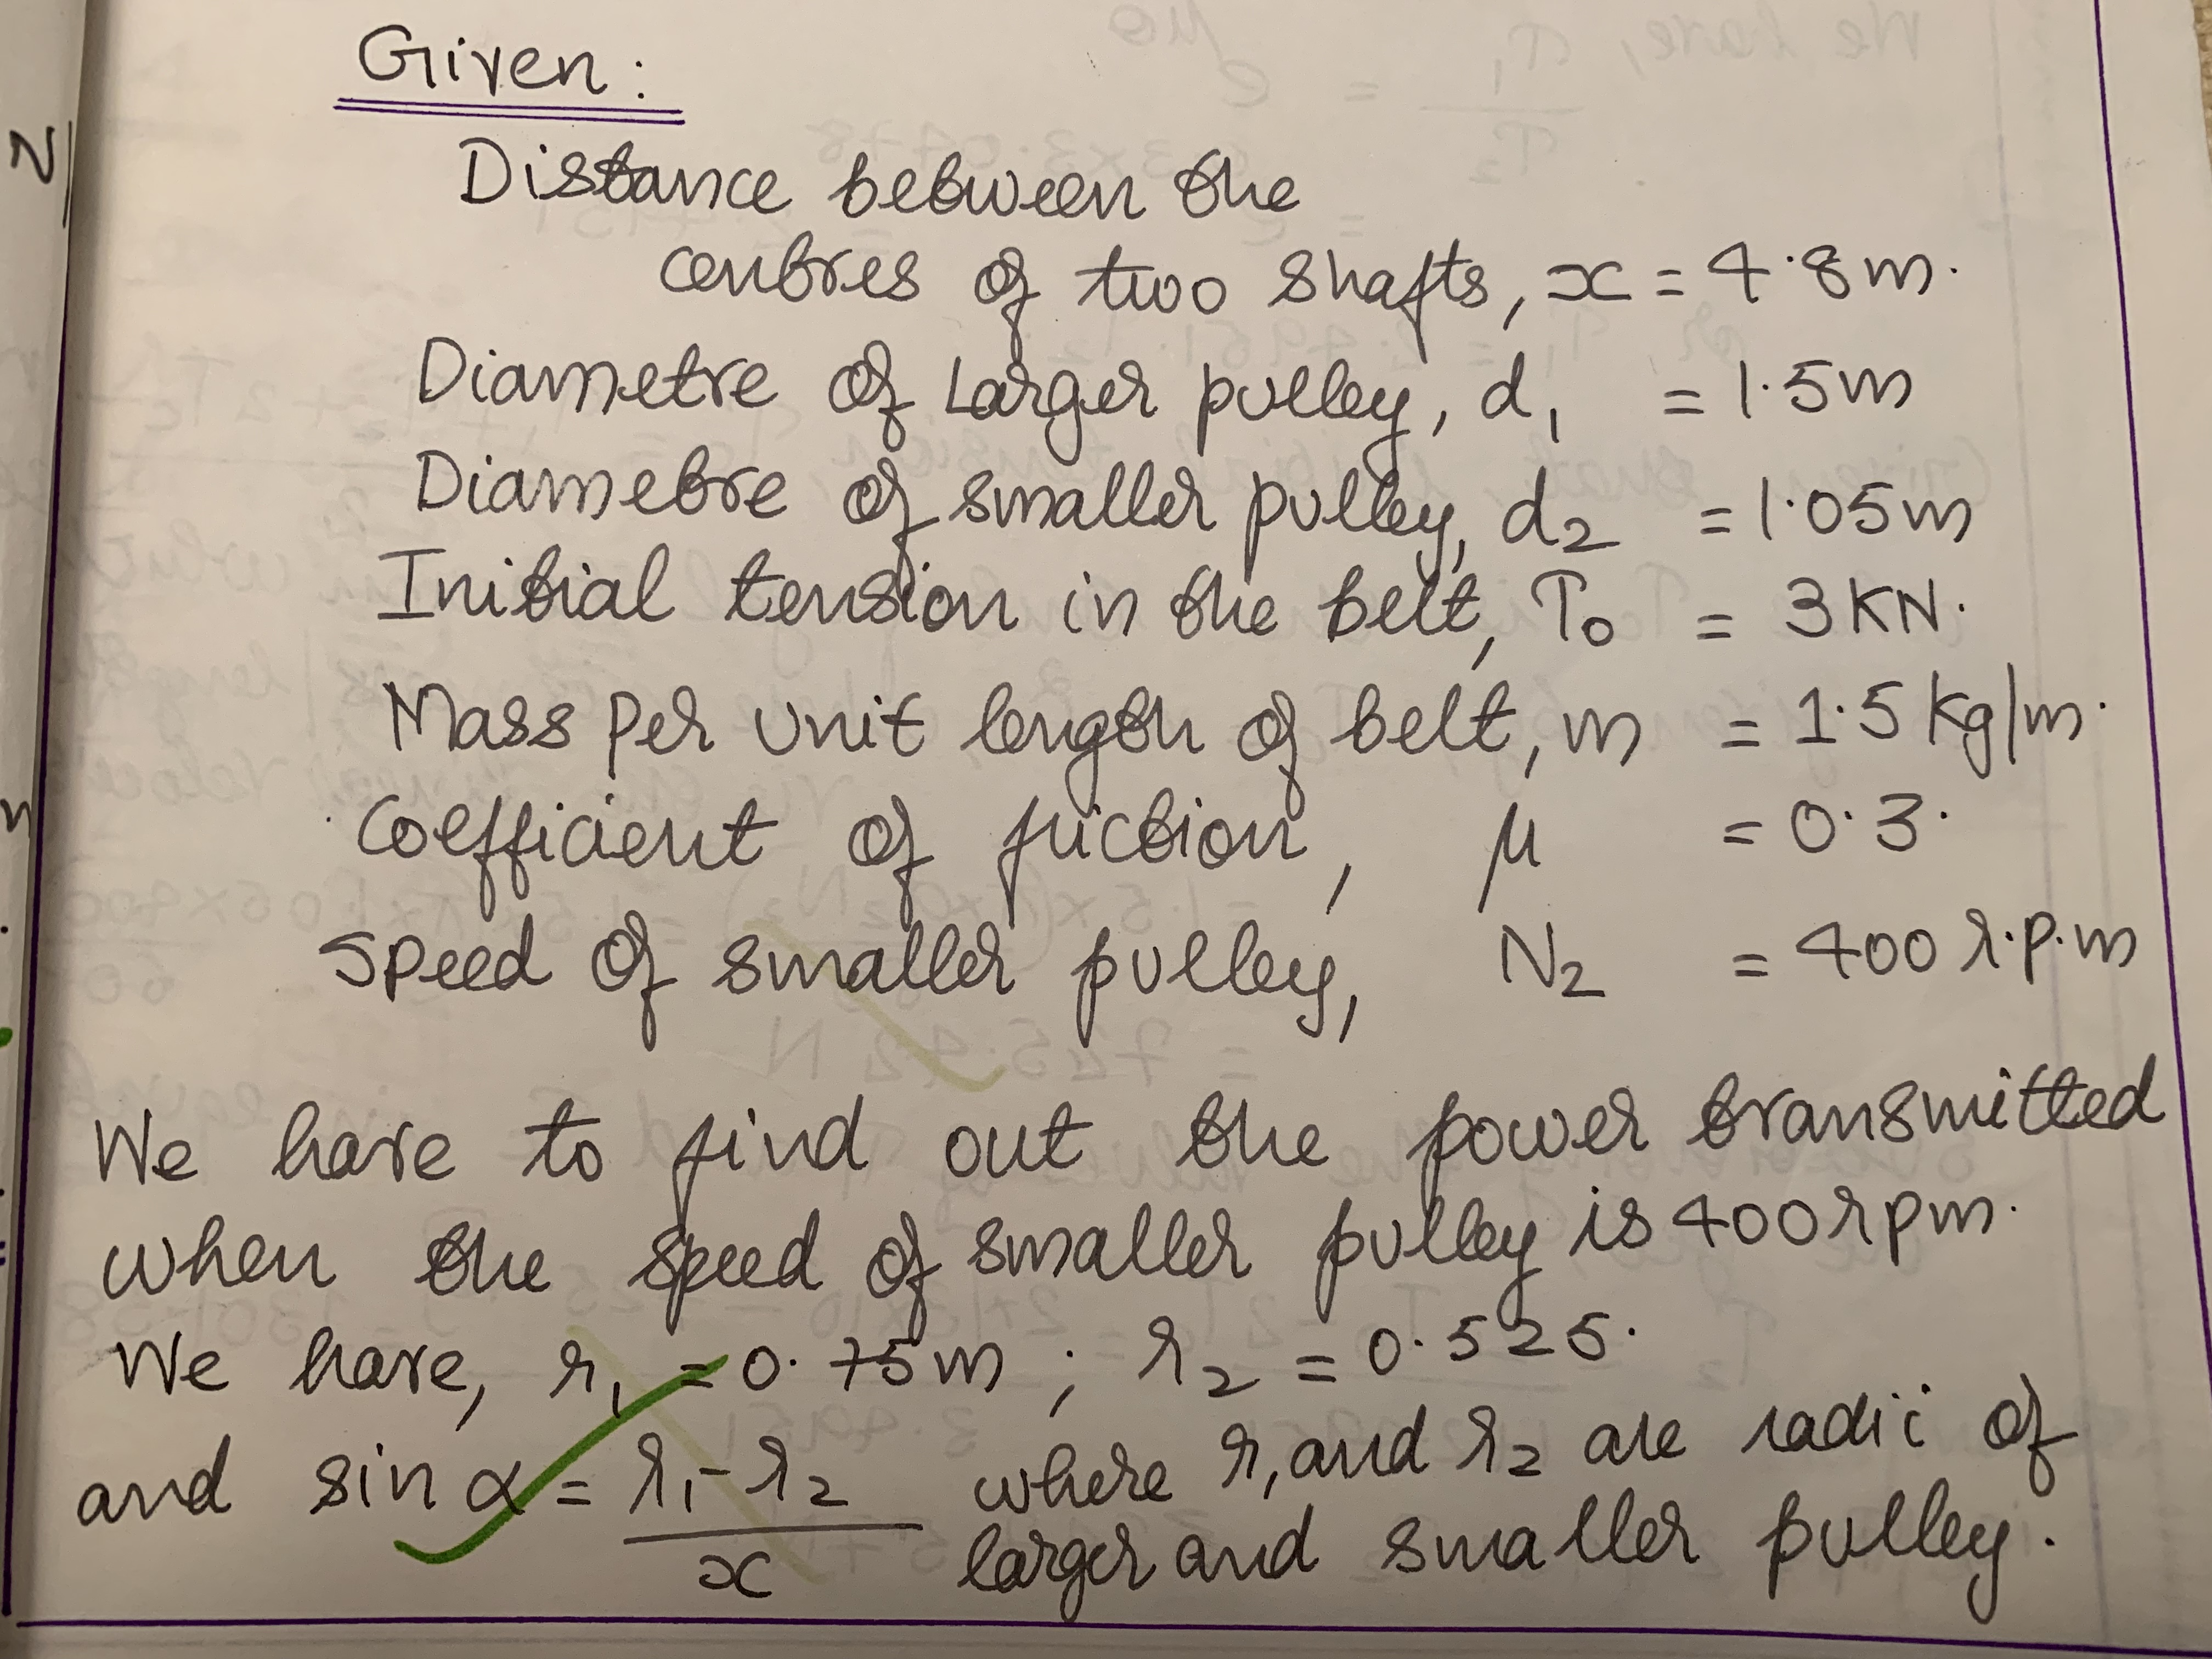 N
n
Given:
Distance between the
centres of two shafts, x = 4.8m.
Diametre of Larger pulley, d1 = 1.5m
Diametre of smaller pulley, d2 = 1.05m
Initial tension in the belt, To = 3KN.
Mass per unit length of belt, m = 1.5kg/m.
Coefficient of friction, μ = 0.3.
Speed of smaller pulley, N2 = 400 r.p.m
We have to find out the power transmitted
when the speed of smaller pulley is 400rpm.
We have, r1 = 0.75m, ; r2 = 0.525.
and sin α = r1 - r2 / x where r1 and r2 are radii of
larger and smaller pulley.